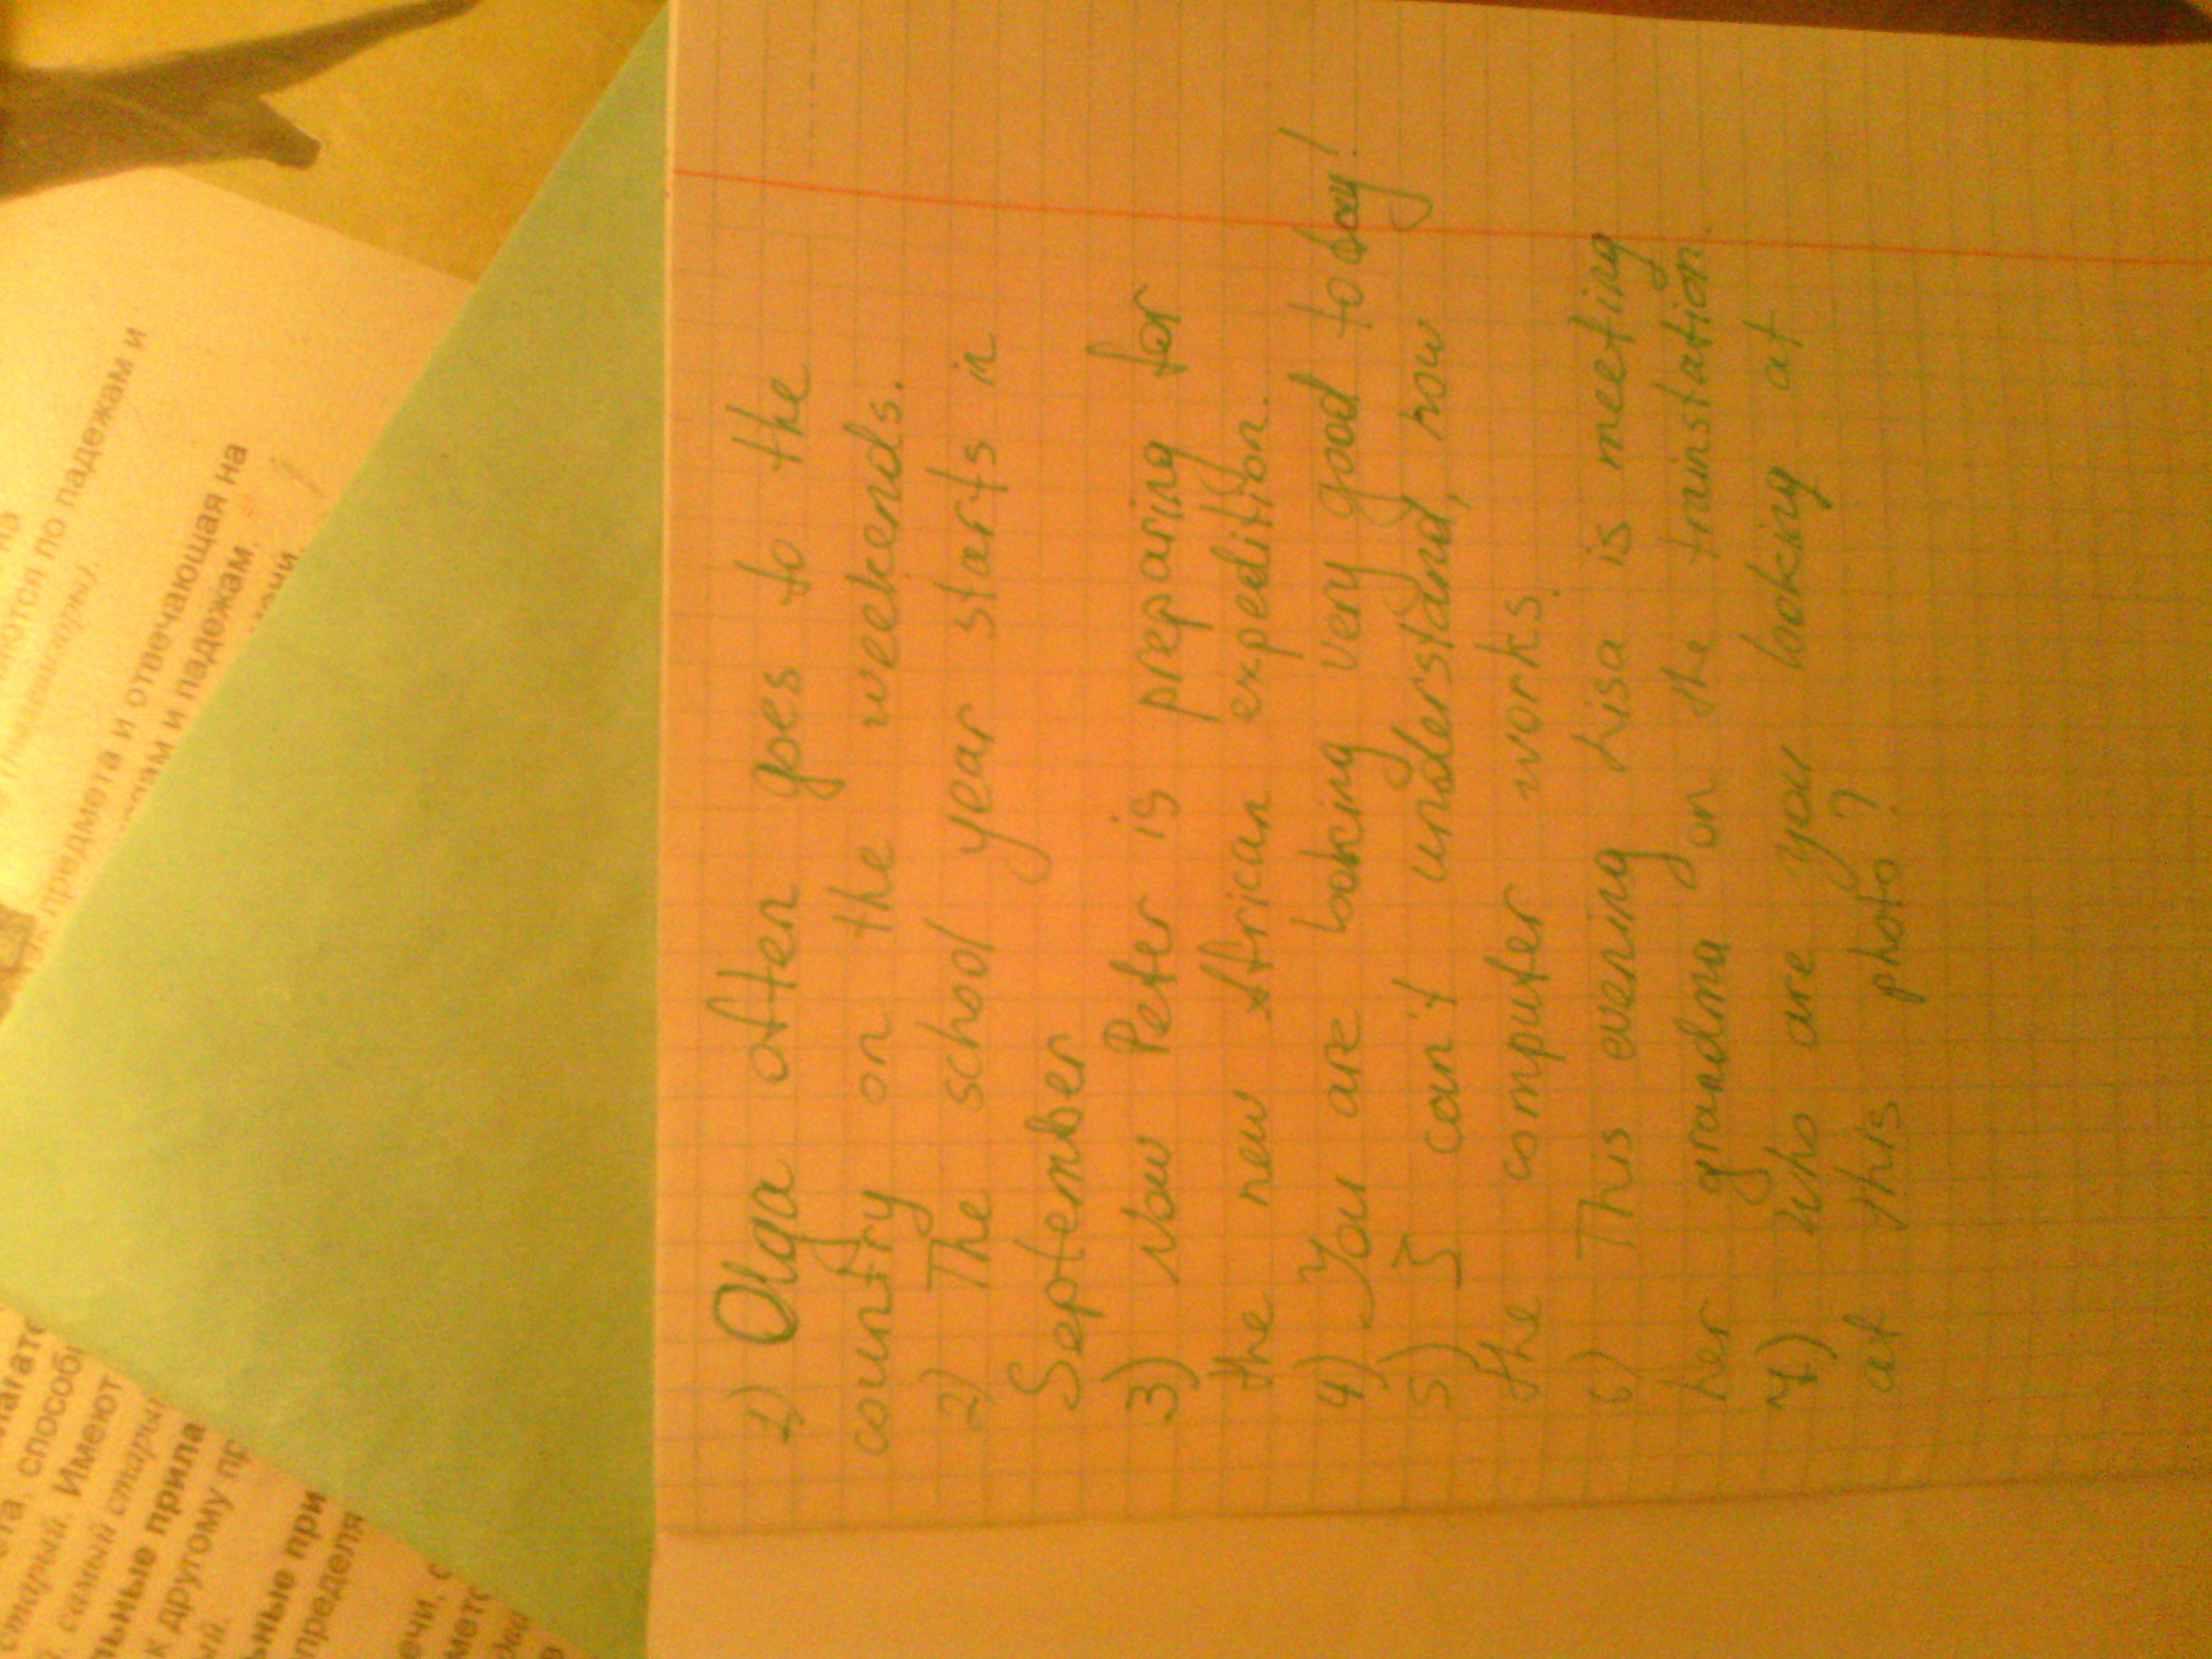 1) Olga often goes to the
country on the weekends.
2) The school year starts in
September
3) Now Peter is preparing for
the new African expedition.
4) You are looking very good today!
5) I can't understand, how
the computer works.
6) This evening Lisa is meeting
her grandma on the trinstation.
7) Who are you looking at
at this photo?
на
по падежам и
предмета и отвечающая на
и падежам.
способ
старый. Имеют
самый старый
льные прила
к другому пр
ый.
ьные при
пределя
ечи, с